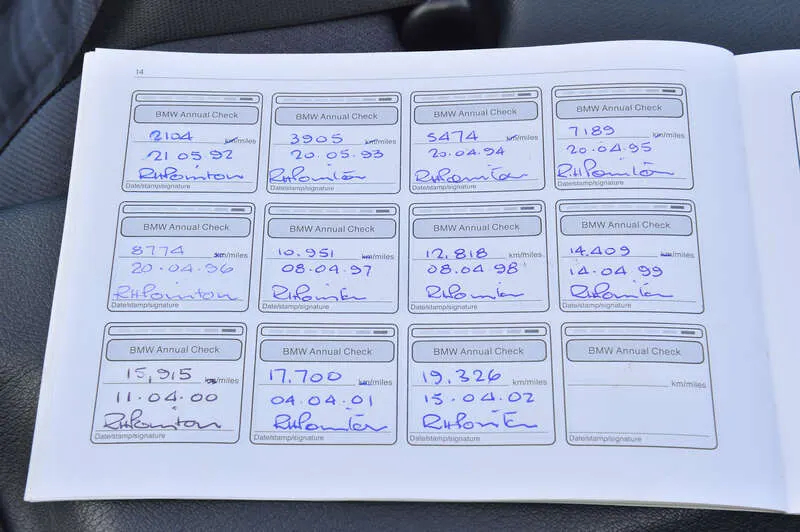 14
BMW Annual Check
2104 km/miles
21 05.92
RHPointon
Date/stamp/signature
BMW Annual Check
3905 km/miles
20.05.93
RHPointon
Date/stamp/signature
BMW Annual Check
5474 km/miles
20.04.94
RHPointon
Date/stamp/signature
BMW Annual Check
7189 km/miles
20.04.95
RHPointon
Date/stamp/signature
BMW Annual Check
8774 km/miles
20.04.96
RHPointon
Date/stamp/signature
BMW Annual Check
10.951 km/miles
08.04.97
RHPointon
Date/stamp/signature
BMW Annual Check
12,818 km/miles
08.04.98
RHPointon
Date/stamp/signature
BMW Annual Check
14.409 km/miles
14.04.99
RHPointon
Date/stamp/signature
BMW Annual Check
15,915 km/miles
11.04.00
RHPointon
Date/stamp/signature
BMW Annual Check
17.700 km/miles
04.04.01
RHPointon
Date/stamp/signature
BMW Annual Check
19,326 km/miles
15.04.02
RHPointon
Date/stamp/signature
BMW Annual Check
km/miles
Date/stamp/signature